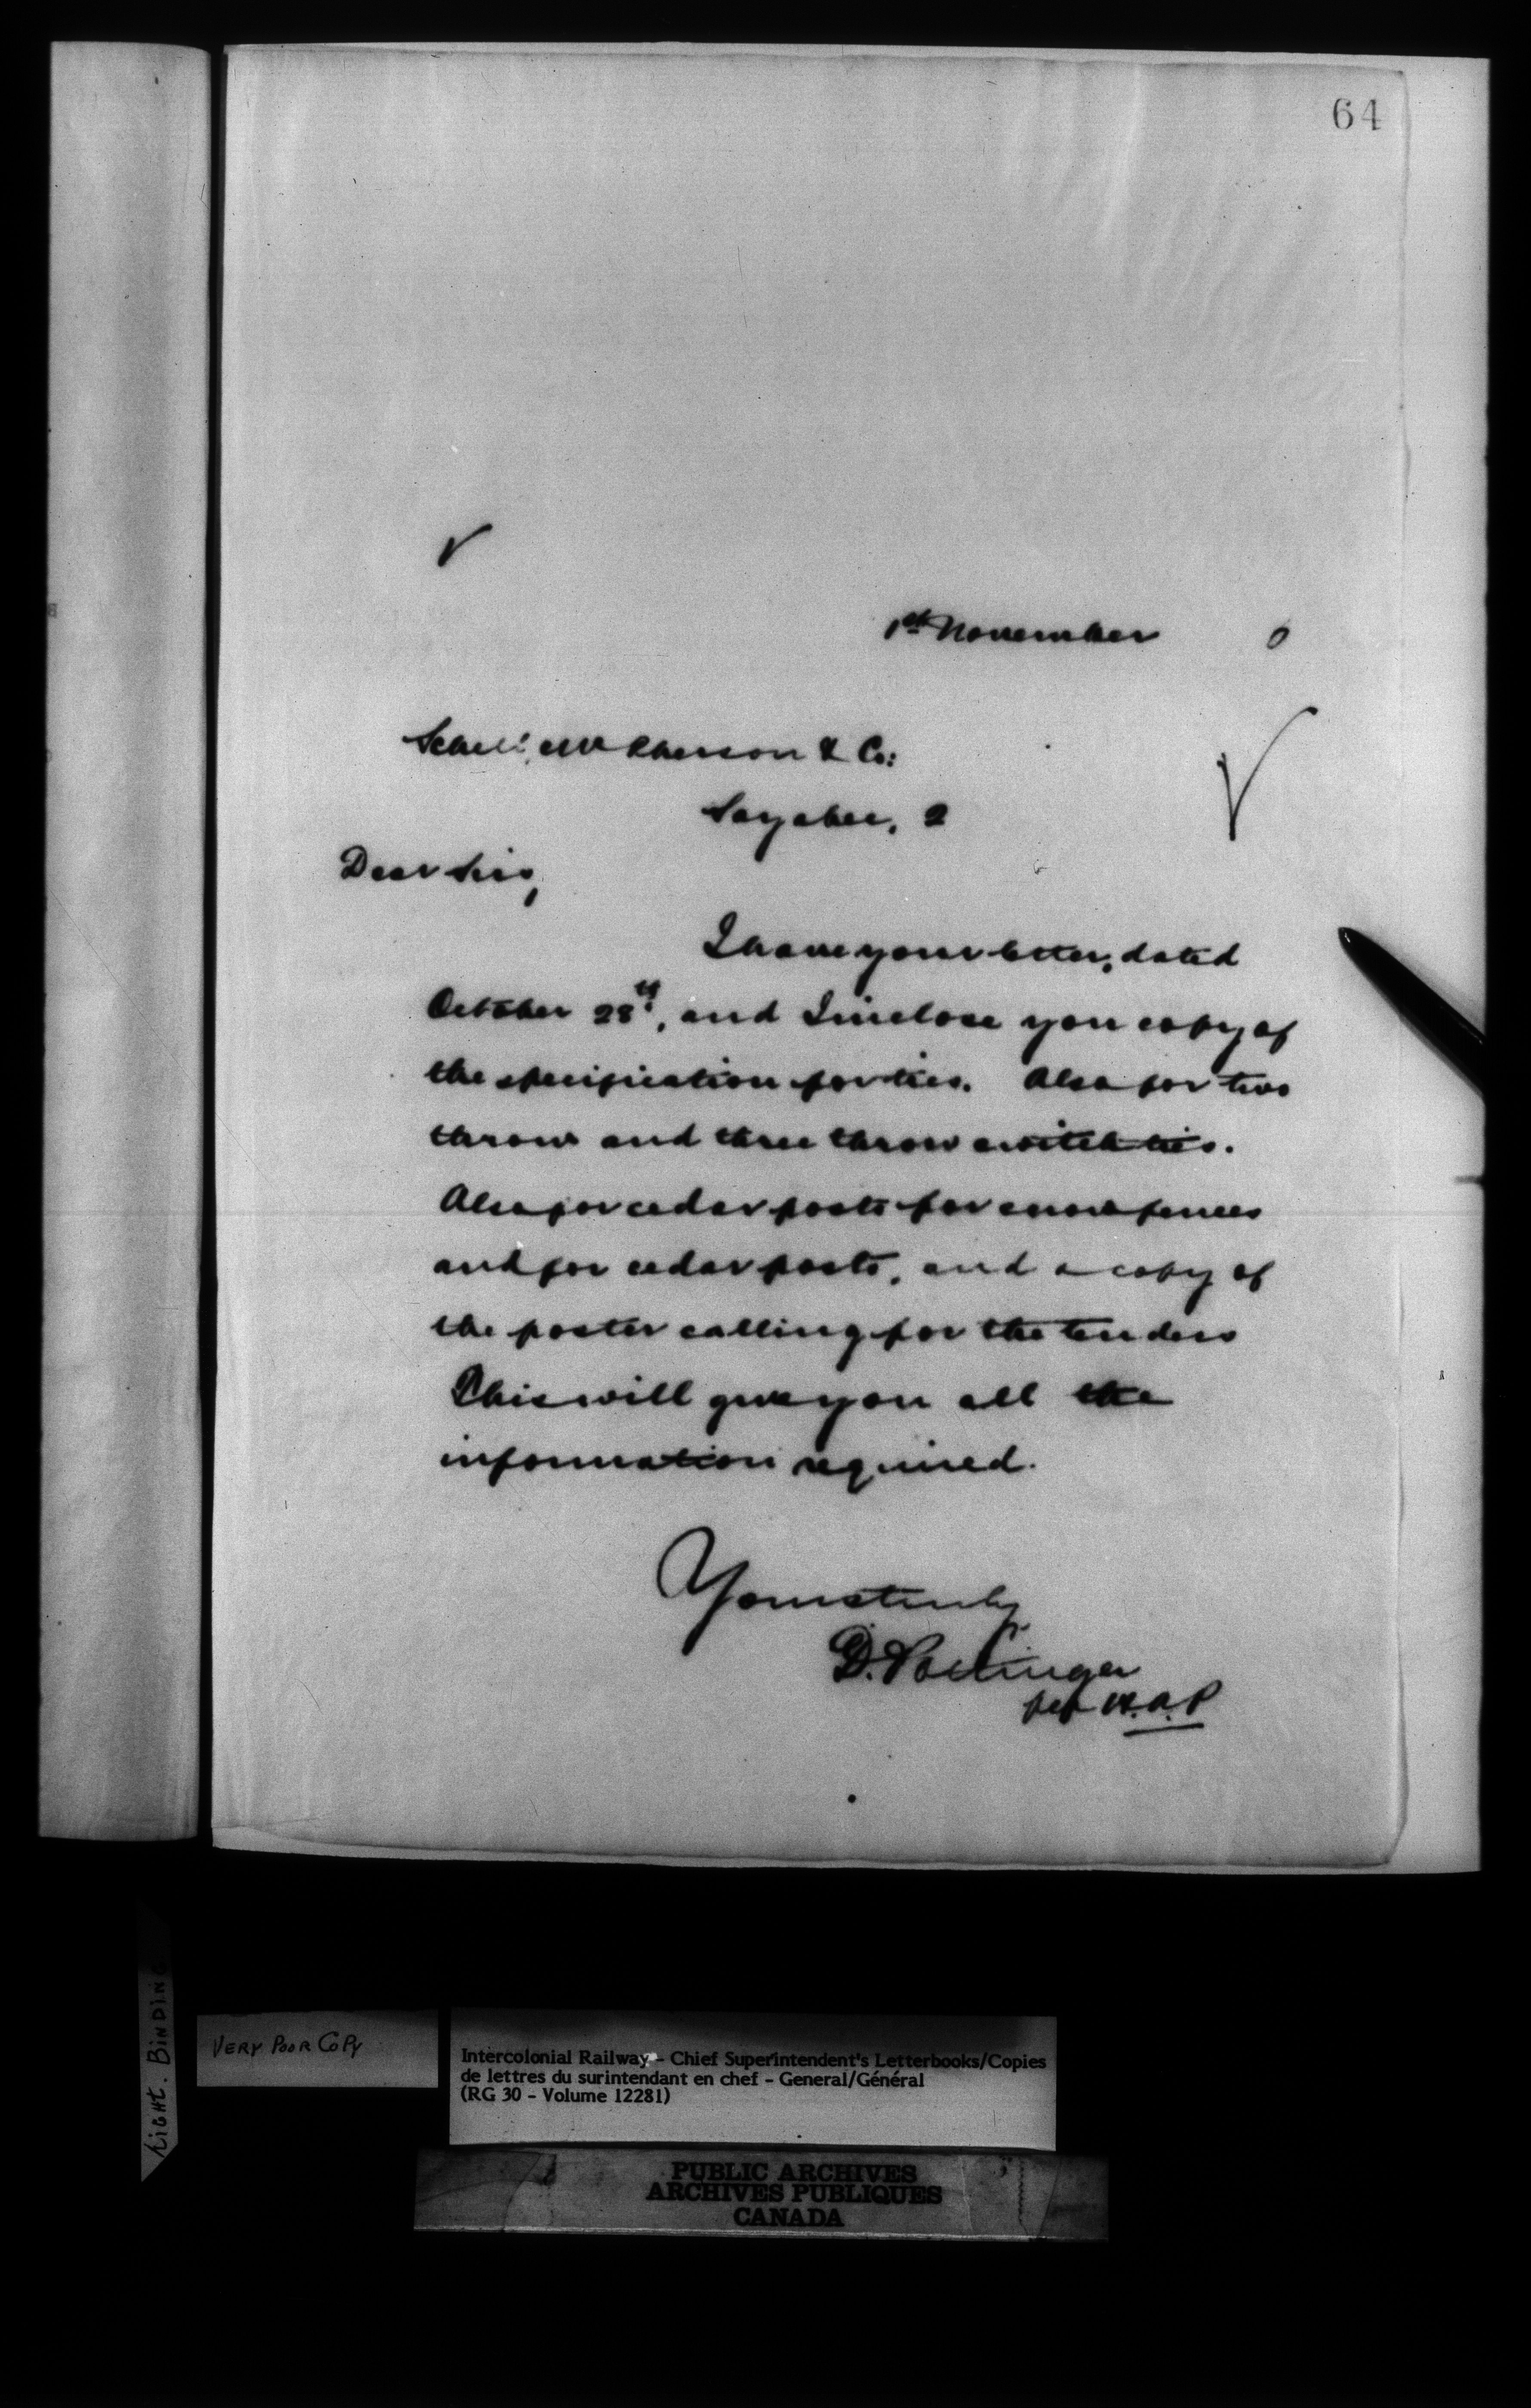 64
1st November 0
Schell, McPherson & Co:
Sayabec, Q
Dear Sirs,
I have your letter, dated
October 28th, and I inclose you copy of
the specification for ties. Also for two
throw and three throw switch ties.
Also for cedar posts for snow fences
and for cedar posts, and a copy of
the poster calling for the tenders
This will give you all the
information required.
Yours truly
D. Pottinger
per W.A.P
TIGHT. BINDING
VERY POOR COPY
Intercolonial Railway - Chief Superintendent's Letterbooks/Copies
de lettres du surintendant en chef - General/Général
(RG 30 - Volume 12281)
PUBLIC ARCHIVES
ARCHIVES PUBLIQUES
CANADA